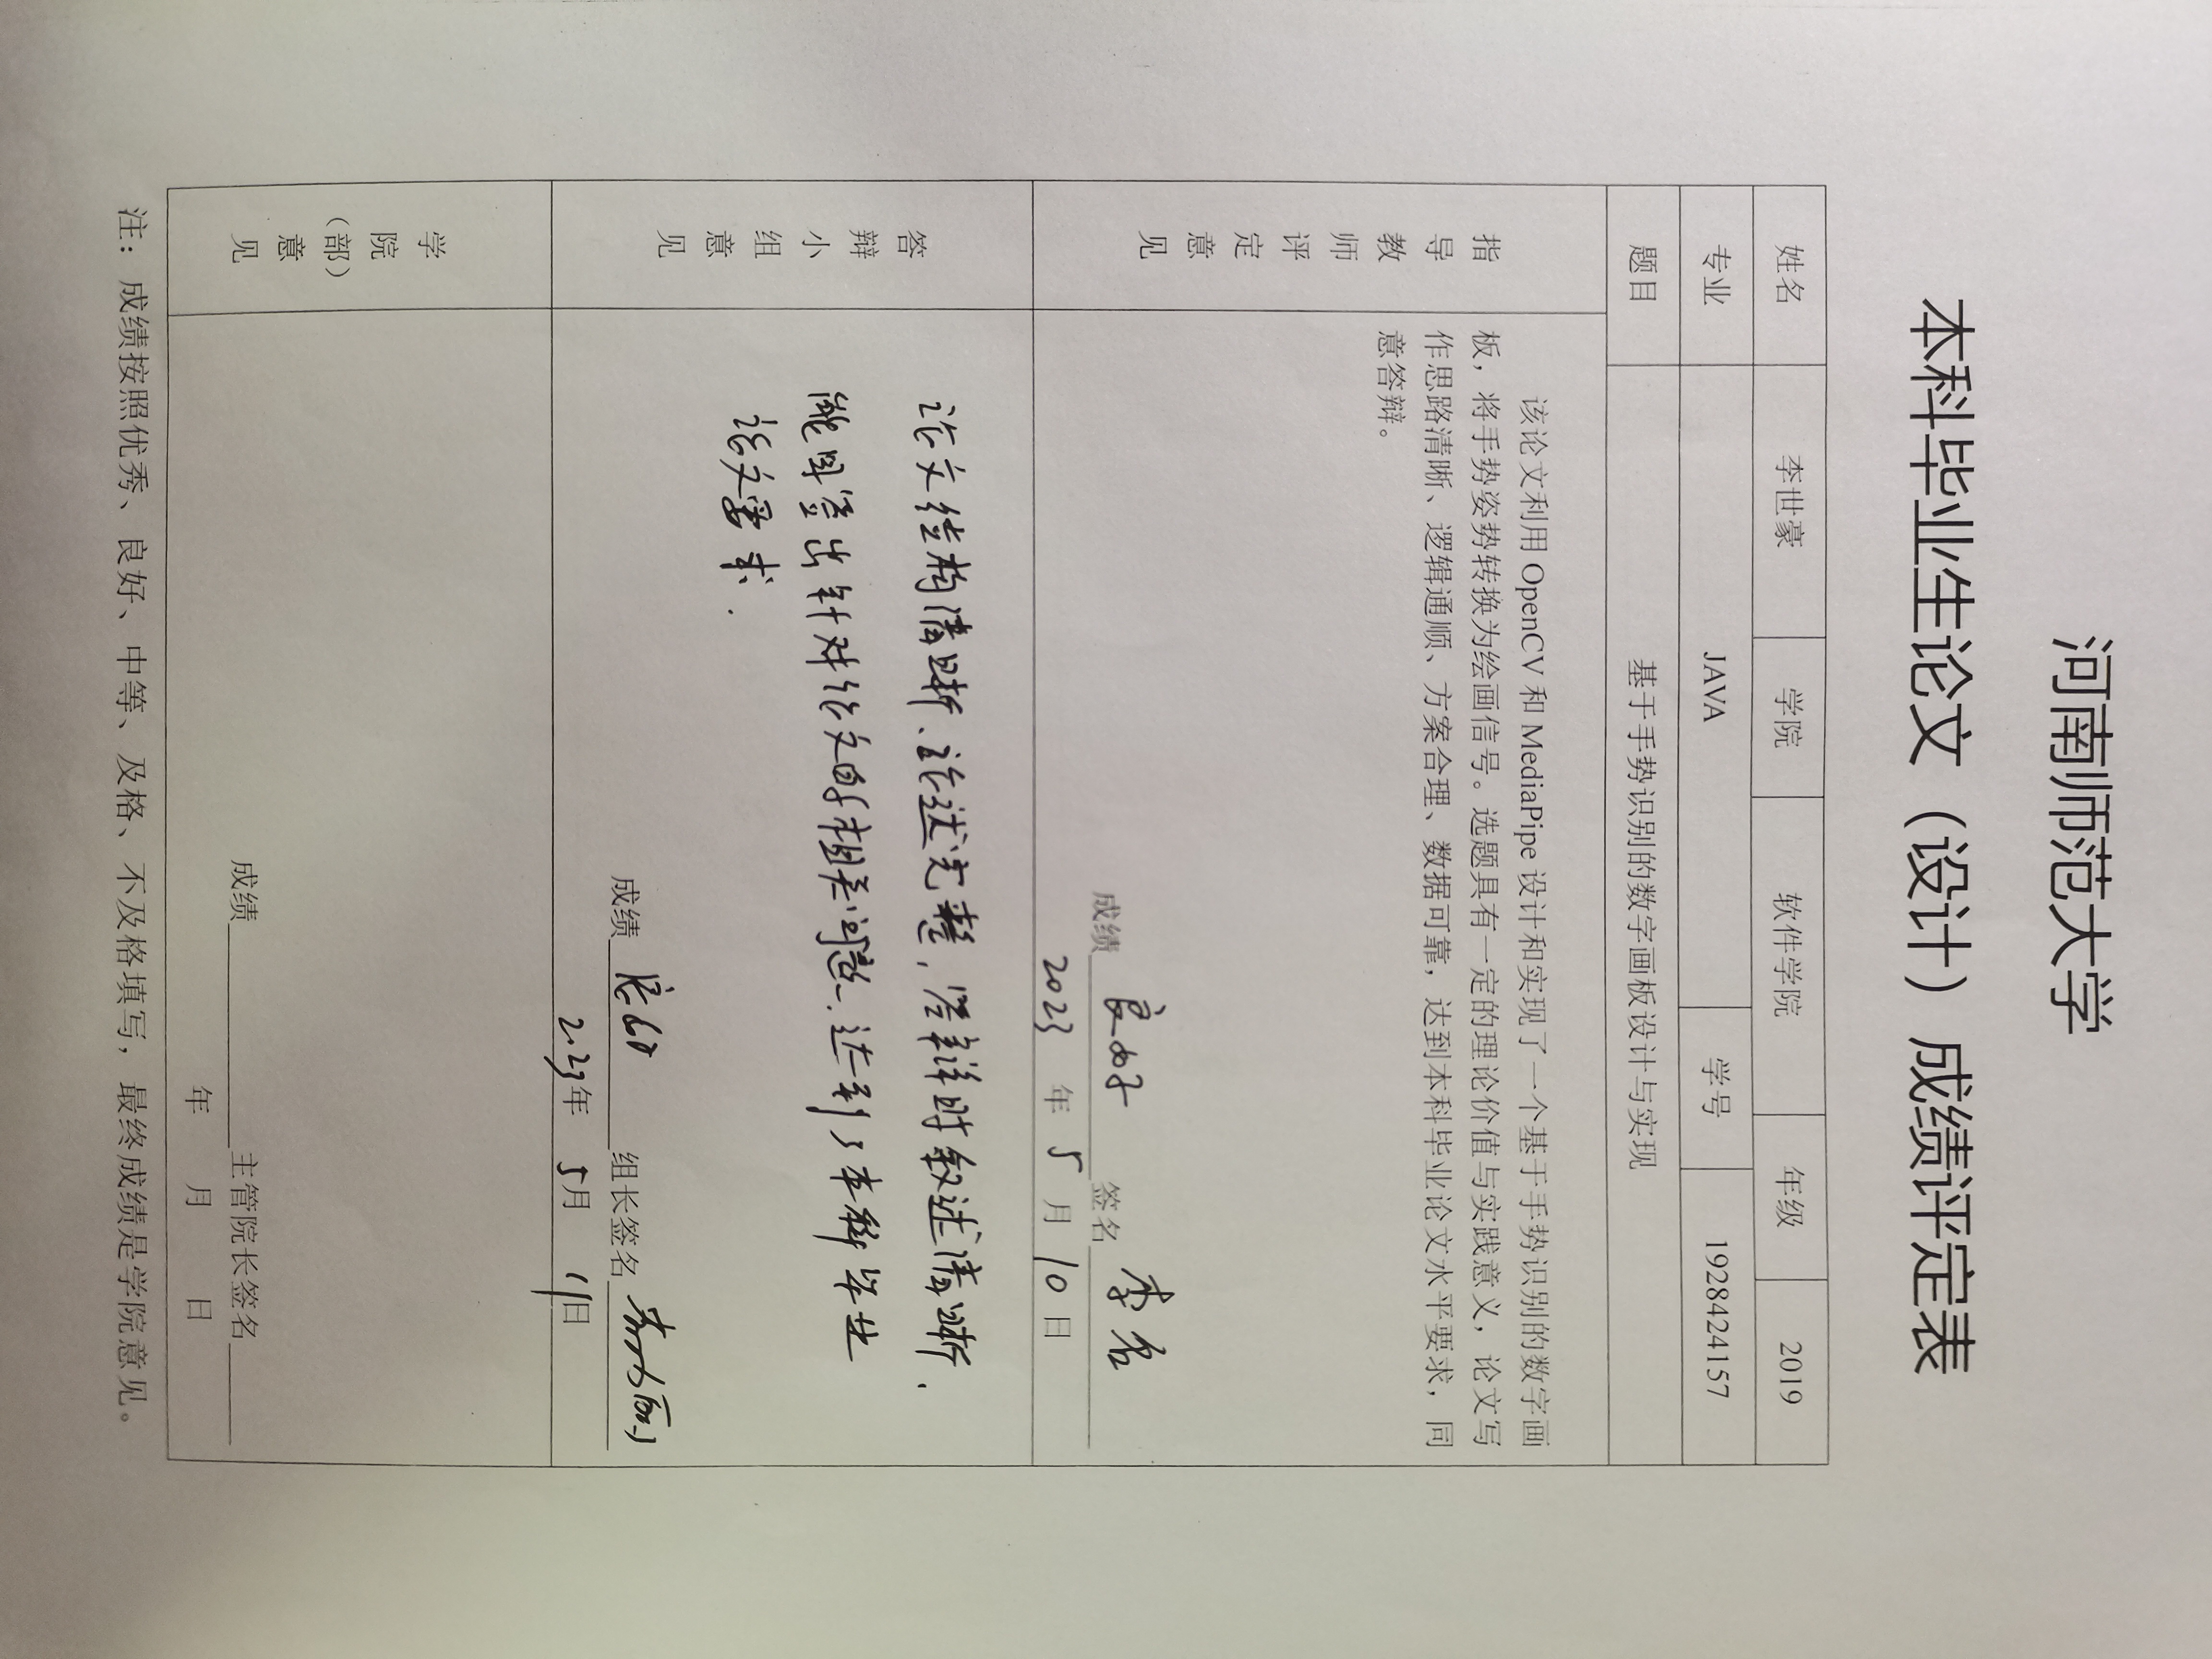 河南师范大学
本科毕业生论文（设计）成绩评定表
姓名 李世豪 学院 软件学院 年级 2019
专业 JAVA 学号 1928424157
题目 基于手势识别的数字画板设计与实现
指导教师评定意见
该论文利用 OpenCV 和 MediaPipe 设计和实现了一个基于手势识别的数字画
板，将手势姿势转换为绘画信号。选题具有一定的理论价值与实践意义，论文写
作思路清晰、逻辑通顺、方案合理、数据可靠，达到本科毕业论文水平要求，同
意答辩。
成绩 良好 签名 李名
2023 年 5 月 10 日
答辩小组意见
论文结构清晰、论述完整，答辩时叙述清晰，
能回答出针对论文的相关问题、达到了本科毕业
论文要求.
成绩 良好 组长签名
2023年 5月 11日
学院（部）意见
成绩 主管院长签名
年 月 日
注：成绩按照优秀、良好、中等、及格、不及格填写，最终成绩是学院意见。